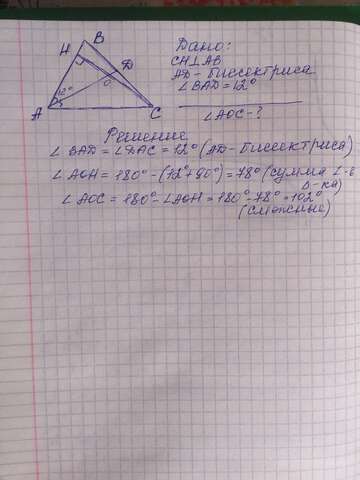 B
H
D
12°
O
A
C
Дано:
CH⊥AB
AD - биссектриса
∠BAD = 12°
∠AOC - ?
Решение
∠BAD = ∠DAC = 12° (AD - биссектриса)
∠AOH = 180° - (12° + 90°) = 78° (сумма ∠-в
Δ-ка)
∠AOC = 180° - ∠AOH = 180° - 78° = 102°
(смежные)